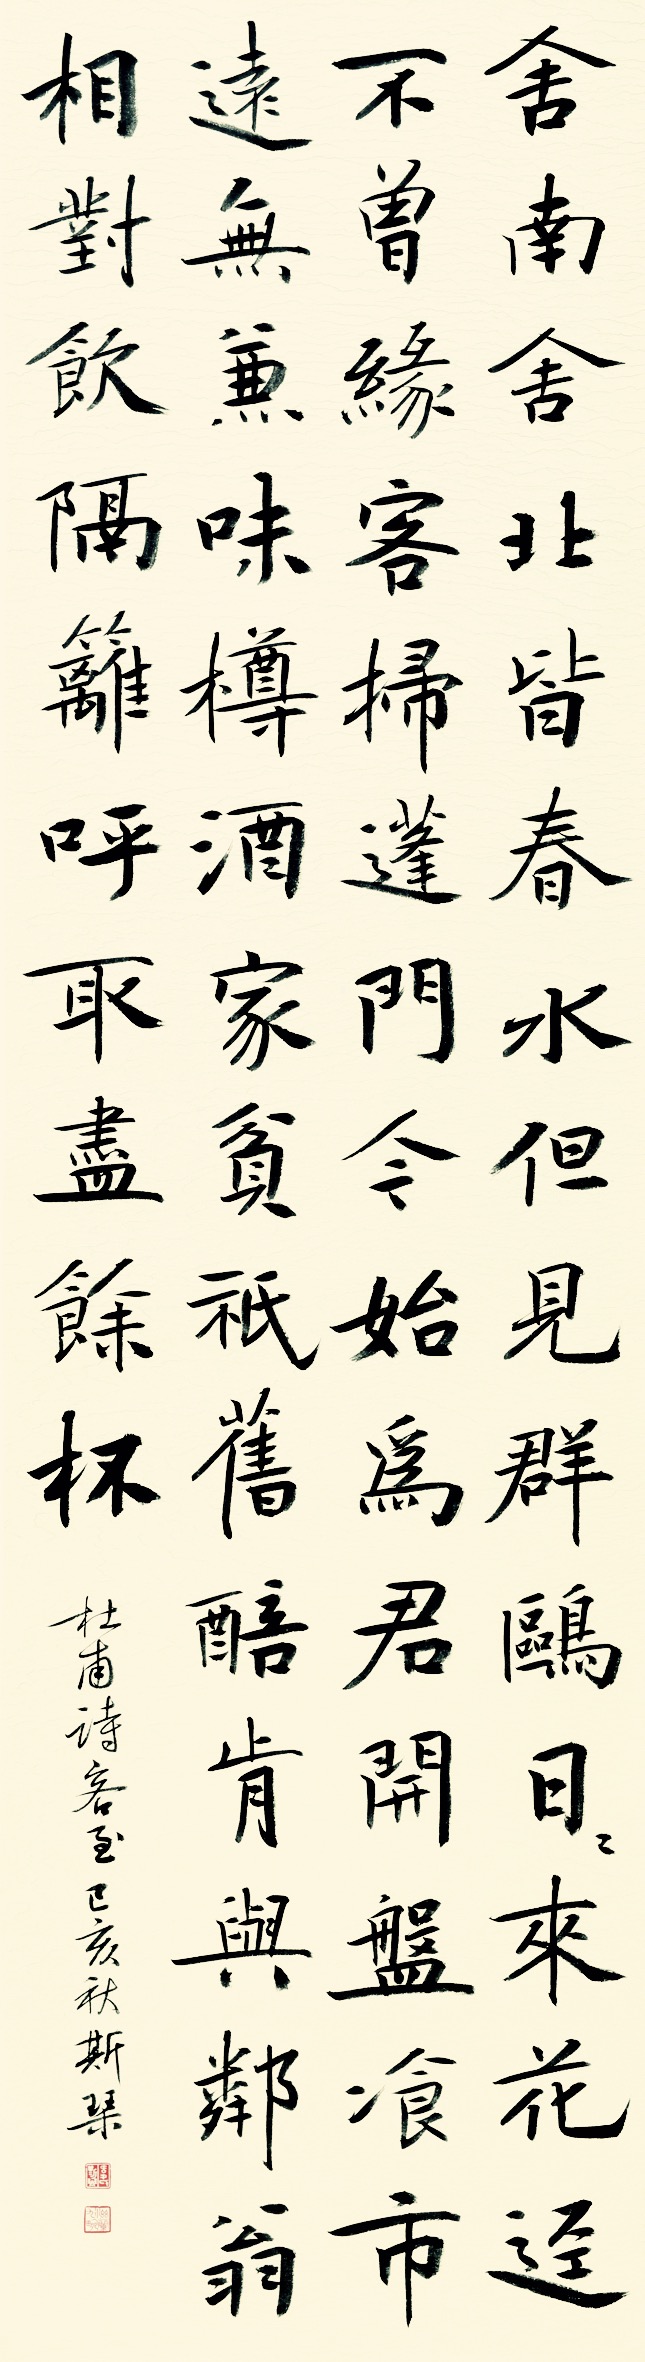 舍南舍北皆春水但見群鷗日〻來花逕
不曾緣客掃蓬門今始為君開盤飧市
遠無兼味樽酒家貧祇舊醅肯與鄰翁
相對飲隔籬呼取盡餘杯
杜甫詩客至己亥秋斯琴